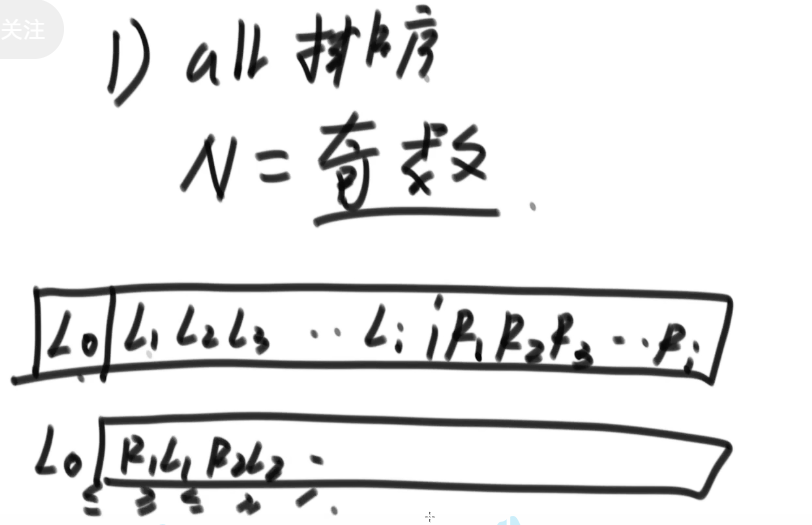 关注
1) all 排序
N = 奇数
L0 L1 L2 L3 ·· Li i R1 R2 R3 ··· Ri
L0 R1 L1 R2 L2 ·
≤ ≥ ≤